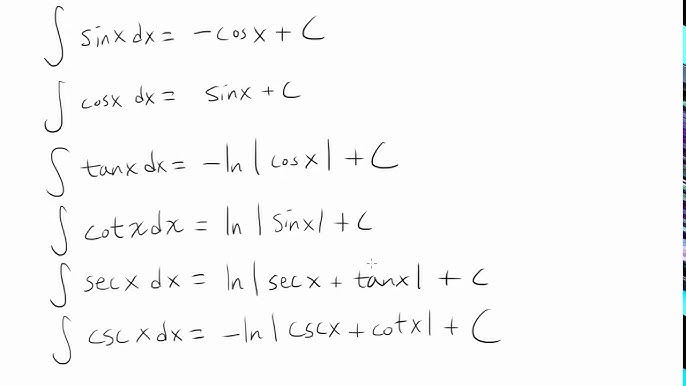 ∫ sinx dx = -cosx + C
∫ cosx dx = sinx + C
∫ tanx dx = -ln|cosx| + C
∫ cotx dx = ln|sinx| + C
∫ secx dx = ln|secx + tanx| + C
∫ cscx dx = -ln|cscx + cotx| + C